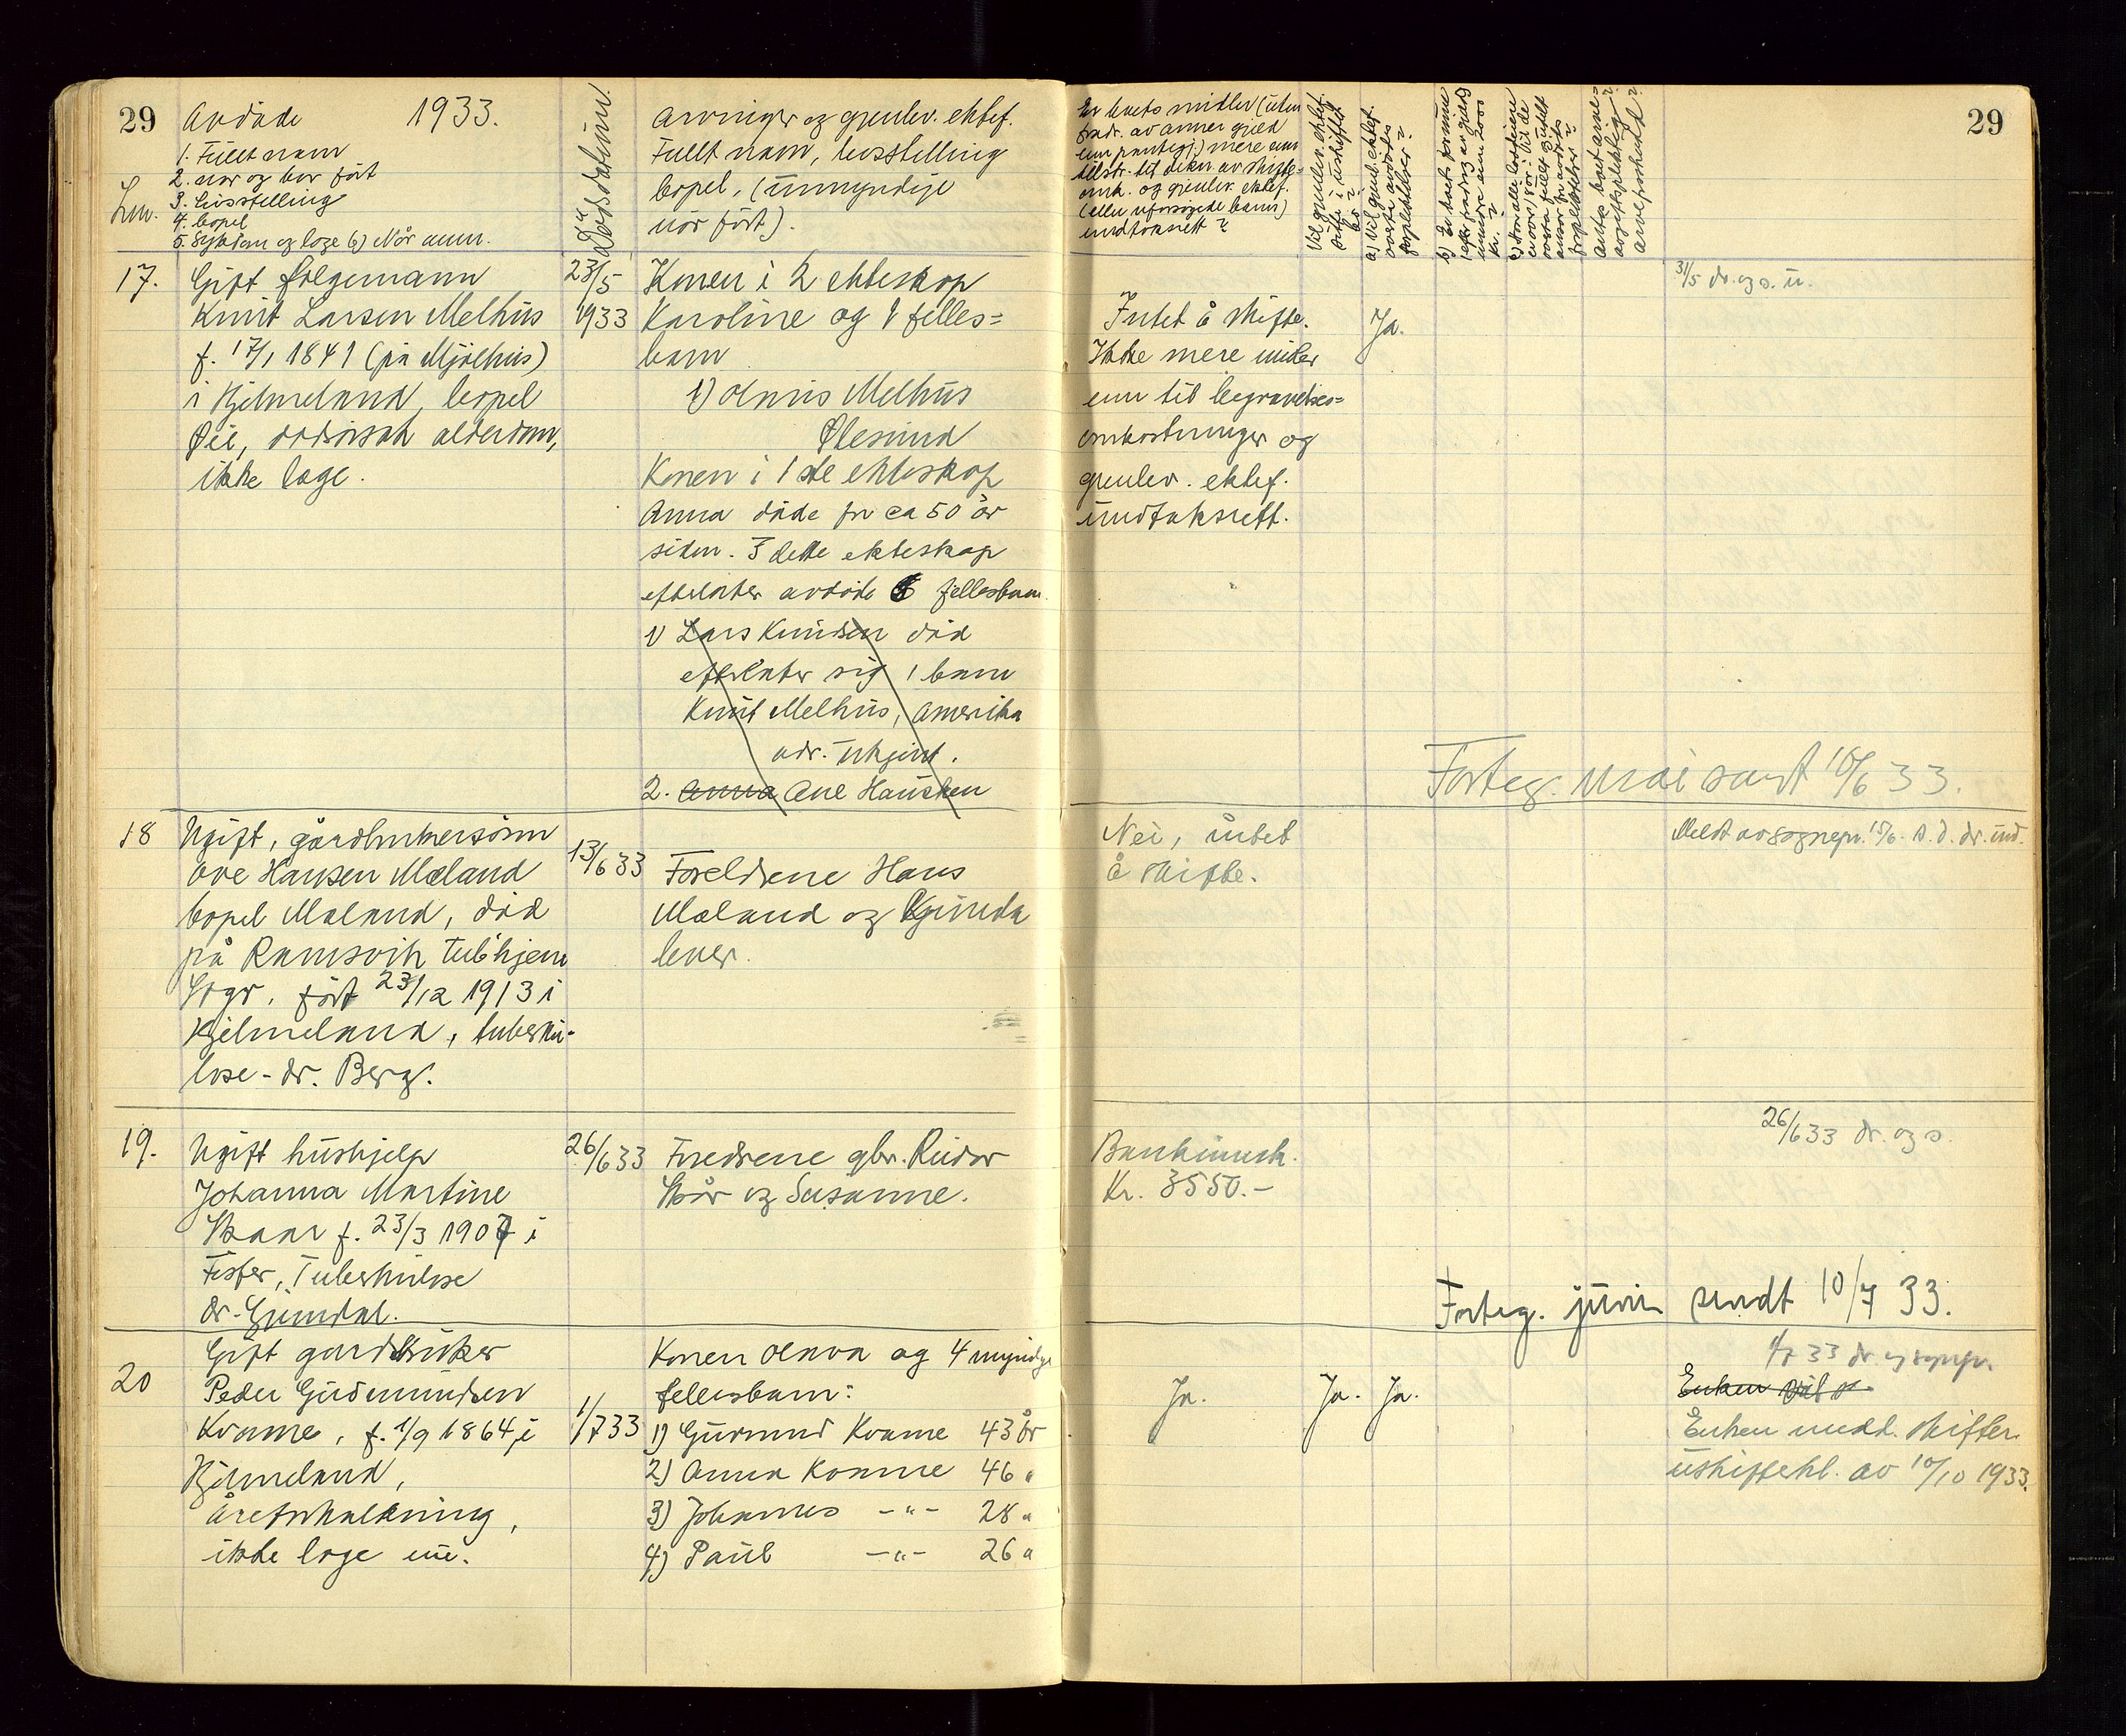 29
Avdöde 1933.
1. Fullt navn
2. når og hvor fört
3. livsstilling
4. bopel
5. Sykdom og læge 6) Når anm.
Lnr.
Dødsdatum.
Arvinger og gjenlev. ektef.
Fullt navn, livsstilling
bopel, (umyndige
når fört).
17.
Gift følgemann
Knut Larsen Melhus
f. 17/1 1841 (på Mjølhus)
i Hjelmeland, bopel
Øie, dødsårsak alderdom,
ikke læge.
23/5
1933
Konen i 2 ekteskap
Karoline og 1 felles=
barn
1) Olaus Melhus
Ålesund
Konen i 1ste ekteskap
Anna døde for ca 50 år
siden. I dette ekteskap
efterlater avdøde 6 fellesbarn
1) Lars Knudsen död
efterlater sig 1 barn
Knut Melhus, Amerika
adr. ukjent.
2. Anna Ane Hausken
18
Ugift, gårdbrukersönn
Ove Hansen Mæland
bopel Mæland, död
på Ramsvik tub.hjem
Sogn, fört 23/12 1913 i
Hjelmeland, tuberku-
lose - dr. Berg.
13/6 33
Foreldrene Hans
Mæland og Gunda
lever.
19.
Ugift hushjelp
Johanna Martine
Skaar f. 23/3 1907 i
Fister, Tuberkulose
dr. Grimdal.
26/6 33
Foredrene gbr. Reidar
Skår og Susanne.
20
Gift gardbruker
Peder Gudmundsen
Kvame, f. 1/9 1864 i
Hjelmeland,
åreforkalkning,
ikke læge
1/7 33
Konen Olava og 4 myndige
fellesbarn:
1) Gudmund Kvame 43 år
2) Anna Kvamme 46 "
3) Johannes -"- 28 "
4) Paul -"- 26 "
29
Er boets midler (uten
fradr. av annen gjeld
enn pantegj.) mere enn
tilstr. til dekn. av skifte-
omk. og gjenlev. ektef.
(eller uforsörgede barns)
undtaksrett?
Vil gjenlev. ektef.
sitte i uskiftet
bo?
a) Vil gjenl. ektef.
overta avdødes
forpliktelser?
b) Er boets formue
(efter fradrag av gjeld)
mindre enn 2000
kr.?
Antas boet arve-
avgiftspliktig?
Arveforskudd?
31/5 dr. og s. u.
Intet å skifte.
Ikke mere midler
enn til begravelses=
omkostninger og
gjenlev. ektef.
undtaksrett.
Ja.
Forteg. mai sendt 10/6 33.
Nei, intet
å skifte.
Meldt av sognepr. 15/6. s. d. dr. und.
26/6 33 dr. og s.
Bankinnsk.
Kr. 3550.-
Forteg. juni sendt 10/7 33.
4/7 33 dr. og sognepr.
Ja.
Ja.
Ja.
Enken
Enken medd. skifter
uskiftebl. av 10/10 1933.